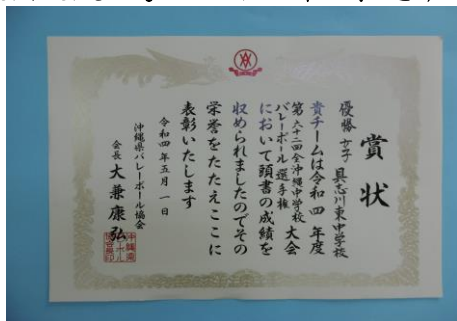 賞状
優勝 女子 具志川東中学校
貴チームは令和四年度
第六二回全沖縄中学校
バレーボール選手権大会
において頭書の成績を
収められましたのでその
栄誉をたたえここに
表彰いたします
令和四年五月一日
沖縄県バレーボール協会
会長 大兼康弘